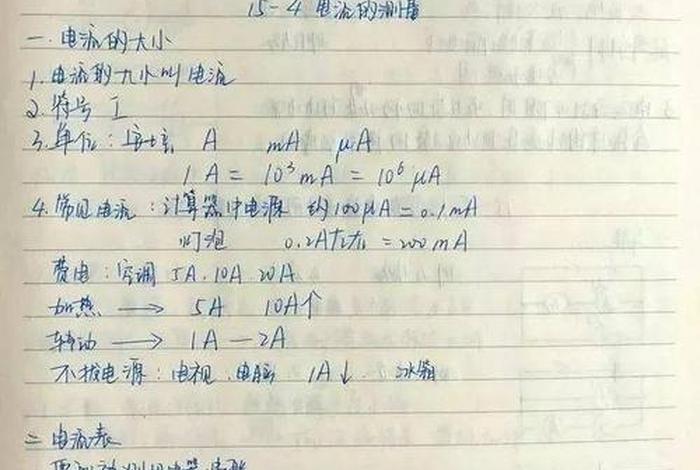 15-4 电流的测量
一. 电流的大小
1. 电流的大小叫电流
2. 符号 I
3. 单位: 安培 A mA μA
1A = 10³mA = 10⁶μA
4. 常见电流: 计算器中电源 约100μA = 0.1mA
灯泡 0.2A左右 = 200mA
费电: 空调 5A. 10A. 20A
加热 → 5A 10A个
转动 → 1A — 2A
不拔电源: 电视. 电脑 1A↓. 冰箱
二 电流表